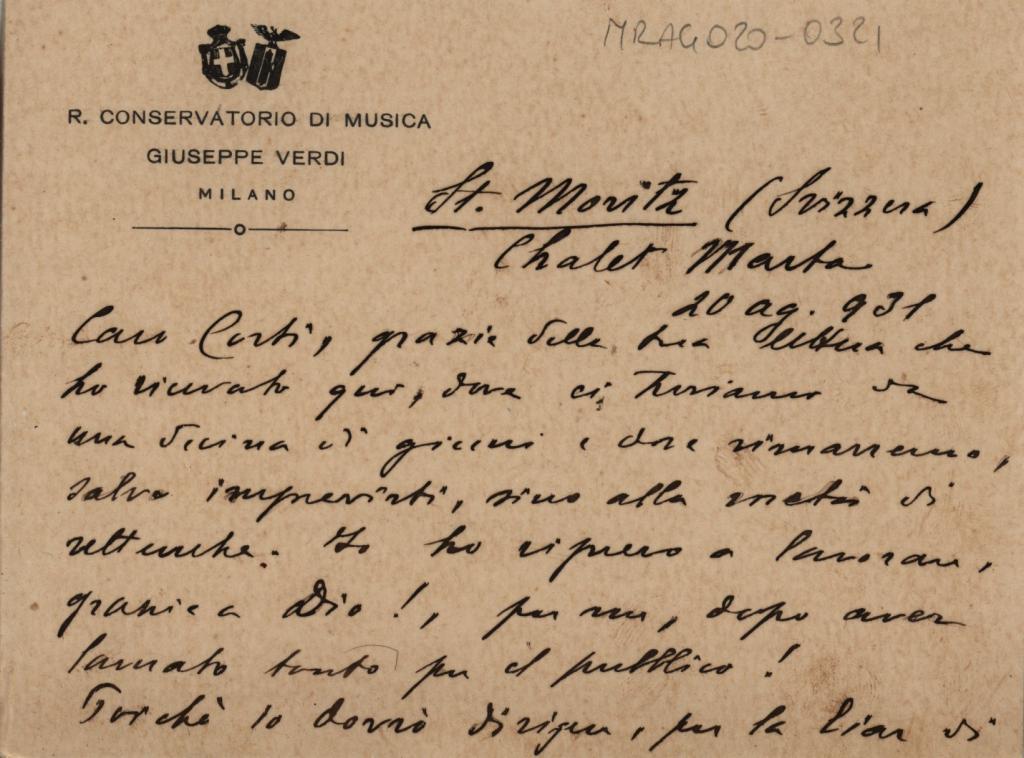 MRAG020-0321
R. CONSERVATORIO DI MUSICA
GIUSEPPE VERDI
MILANO
St. Moritz (Svizzera)
Chalet Marta
20 ag. 931
Caro Corti, grazie della tua lettera che
ho ricevuto qui, dove ci troviamo da
una decina di giorni e dove rimarremo,
salvo imprevisti, sino alla metà di
settembre. Io ho ripreso a lavorare,
grazie a Dio!, per me, dopo aver
lavorato tanto per il pubblico!
io dovrò dirigere, per la di